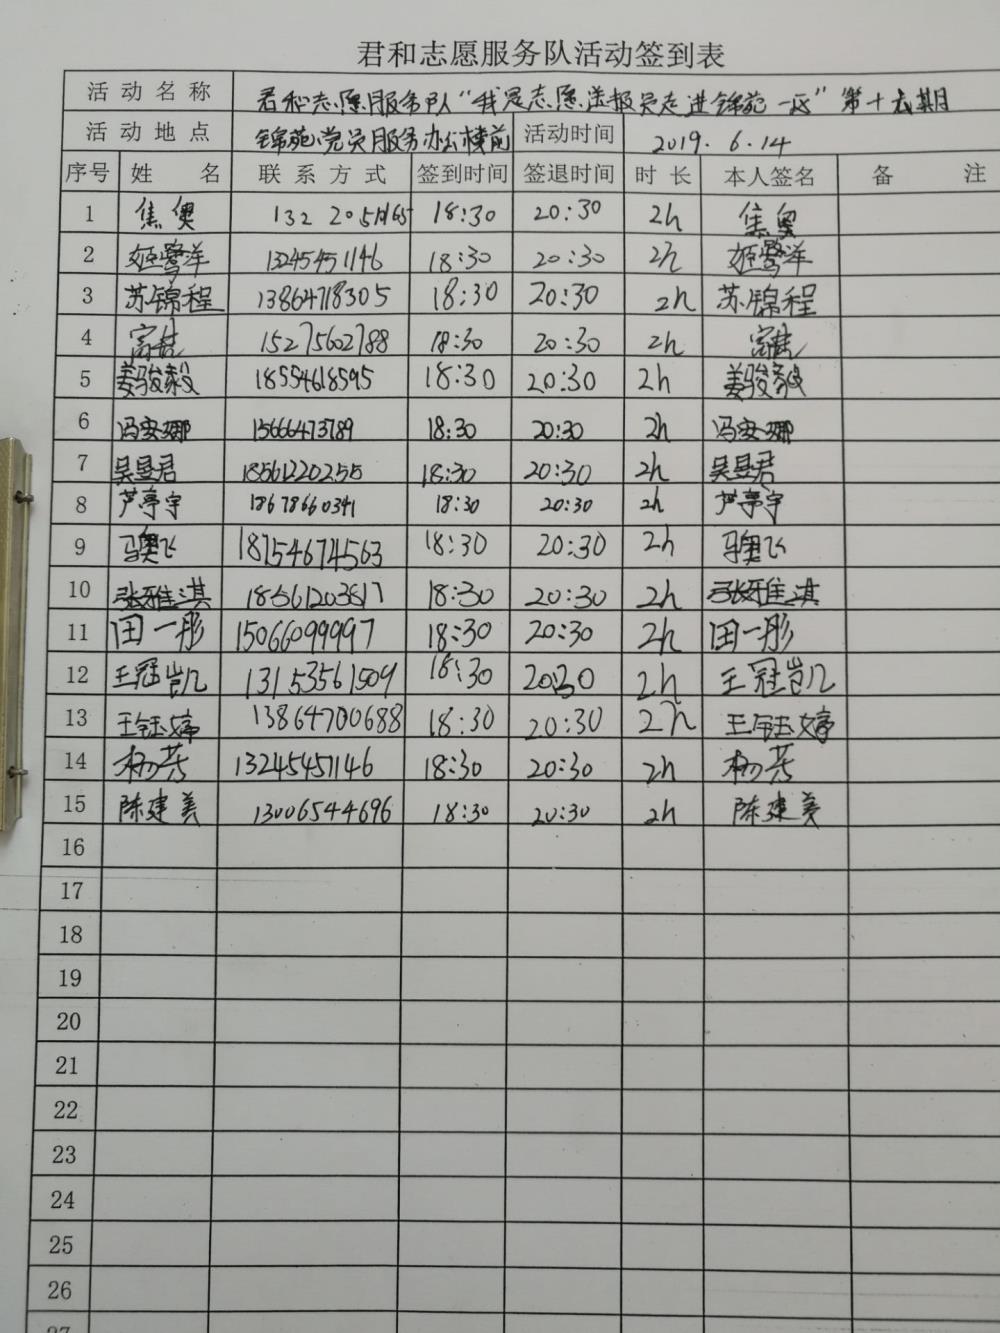 君和志愿服务队活动签到表
活动名称 君和志愿服务队“我是志愿送报员走进锦苑一区”第十六期
活动地点 锦苑党员服务办公楼前 活动时间 2019.6.14
序号 姓名 联系方式 签到时间 签退时间 时长 本人签名 备注
1 焦奥 18:30 20:30 2h 焦奥
2 姬鹭洋 13245451146 18:30 20:30 2h 姬鹭洋
3 苏锦程 13864718305 18:30 20:30 2h 苏锦程
4 15275602788 18:30 20:30 2h
5 姜骏毅 18554618595 18:30 20:30 2h 姜骏毅
6 冯安娜 15666473789 18:30 20:30 2h 冯安娜
7 吴昱君 18561220255 18:30 20:30 2h 吴昱君
8 芦亭宇 18678660341 18:30 20:30 2h 芦亭宇
9 马奥飞 18754674563 18:30 20:30 2h 马奥飞
10 张雅淇 18561203617 18:30 20:30 2h 张雅淇
11 田一彤 15066099997 18:30 20:30 2h 田一彤
12 王冠岂凡 13153561509 18:30 20:30 2h 王冠岂凡
13 王钰婷 13864700688 18:30 20:30 2h 王钰婷
14 杨芳 13245451146 18:30 20:30 2h 杨芳
15 陈建美 13006544696 18:30 20:30 2h 陈建美
16
17
18
19
20
21
22
23
24
25
26
27